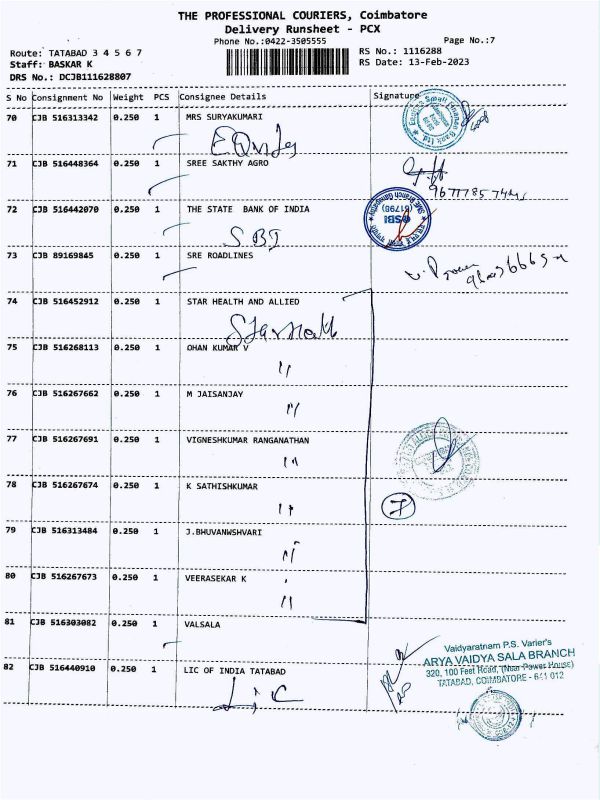 THE PROFESSIONAL COURIERS, Coimbatore
Delivery Runsheet - PCX
Phone No.:0422-3505555 Page No.:7
Route: TATABAD 3 4 5 6 7 RS No.: 1116288
Staff: BASKAR K RS Date: 13-Feb-2023
DRS No.: DCJB111628807
S No Consignment No Weight PCS Consignee Details Signature
70 CJB 516313342 0.250 1 MRS SURYAKUMARI
71 CJB 516448364 0.250 1 SREE SAKTHY AGRO
72 CJB 516442070 0.250 1 THE STATE BANK OF INDIA
SBI
73 CJB 89169845 0.250 1 SRE ROADLINES
74 CJB 516452912 0.250 1 STAR HEALTH AND ALLIED
75 CJB 516268113 0.250 1 OHAN KUMAR V
"
76 CJB 516267662 0.250 1 M JAISANJAY
"
77 CJB 516267691 0.250 1 VIGNESHKUMAR RANGANATHAN
"
78 CJB 516267674 0.250 1 K SATHISHKUMAR
"
7
79 CJB 516313484 0.250 1 J.BHUVANWSHVARI
"
80 CJB 516267673 0.250 1 VEERASEKAR K
"
81 CJB 516303082 0.250 1 VALSALA
82 CJB 516440910 0.250 1 LIC OF INDIA TATABAD
LIC
Vaidyaratnam P.S. Varier's
ARYA VAIDYA SALA BRANCH
320, 100 Feet Road, (Near Power House)
TATABAD, COIMBATORE - 641 012